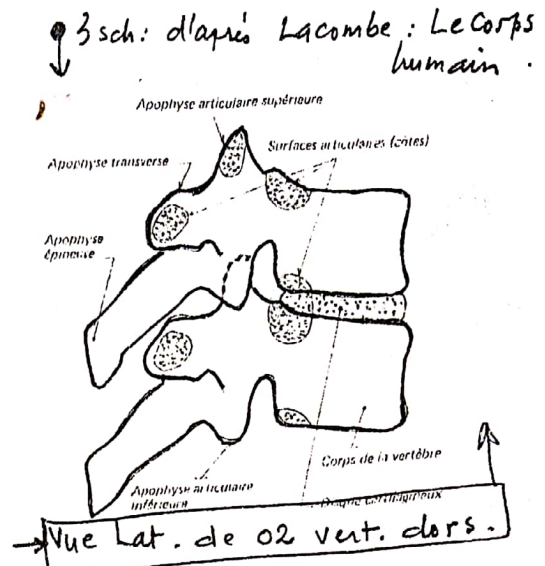 3 sch: d'après Lacombe: Le Corps
humain.
Apophyse articulaire supérieure
Surfaces articulaires (côtes)
Apophyse transverse
Apophyse
épineuse
Corps de la vertèbre
Apophyse articulaire
inférieure
Disque cartilagineux
Vue Lat. de 02 vert. dors.